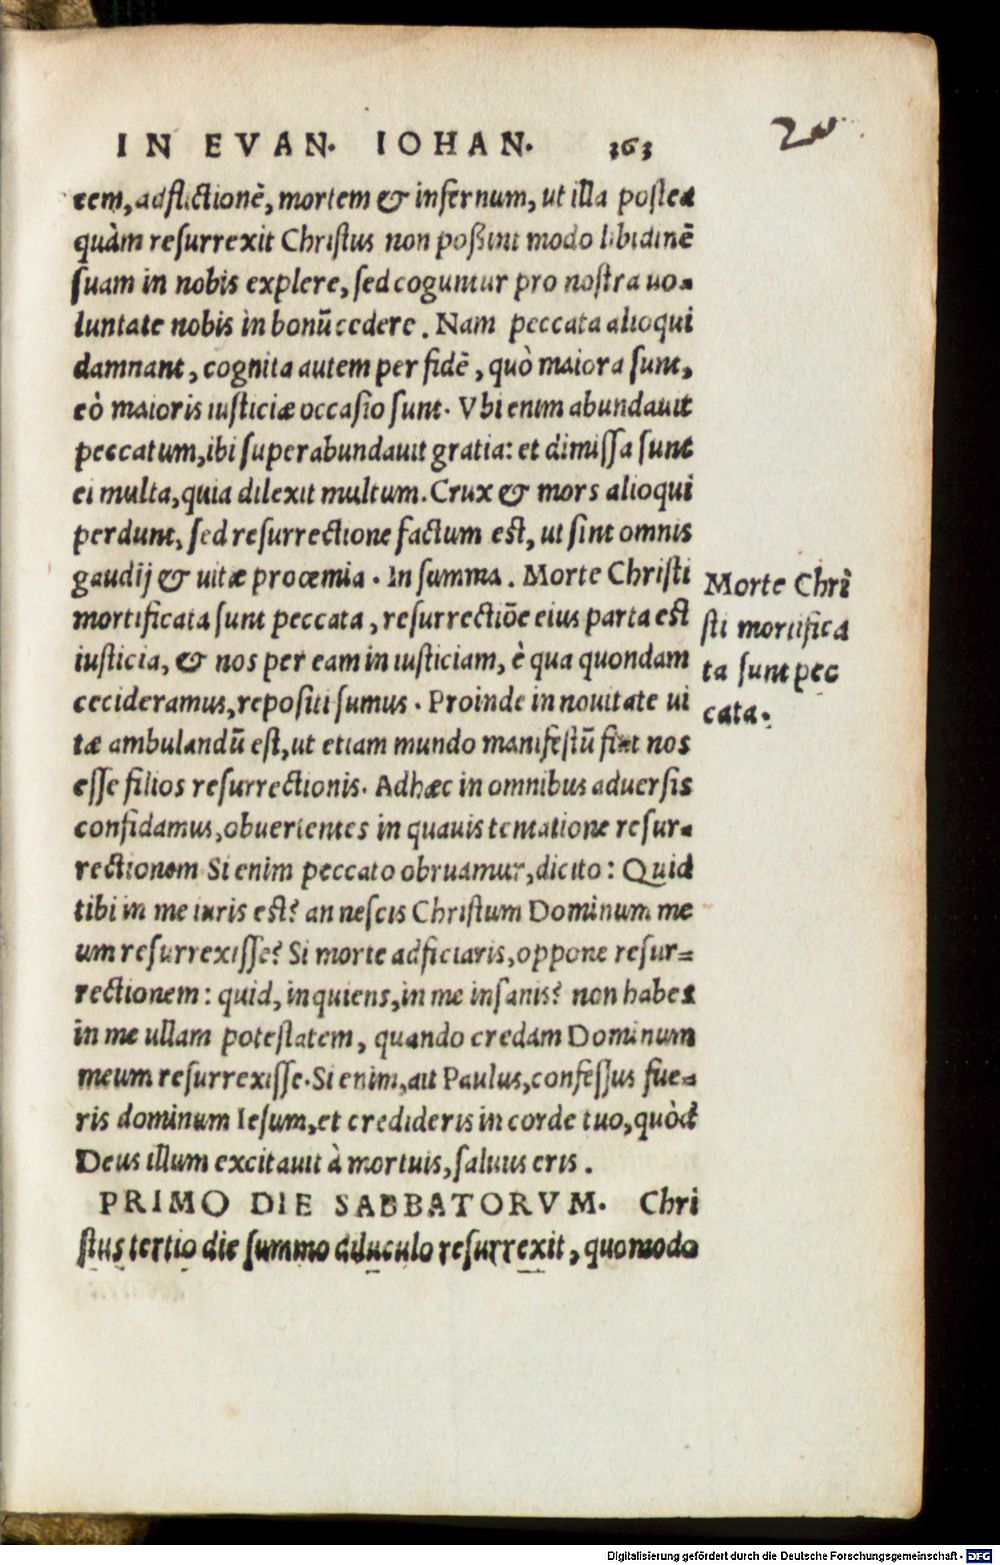 IN EVAN. IOHAN. 363
20
tem, adflictionē, mortem & infernum, ut illa postea
quàm resurrexit Christus non poßint modo libidinē
suam in nobis explere, sed coguntur pro nostra uo-
luntate nobis in bonū cedere. Nam peccata alioqui
damnant, cognita autem per fidē, quò maiora sunt,
eò maioris iusticiæ occasio sunt. Vbi enim abundauit
peccatum, ibi superabundauit gratia: et dimissa sunt
ei multa, quia dilexit multum. Crux & mors alioqui
perdunt, sed resurrectione factum est, ut sint omnis
gaudij & uitæ proœmia. In summa. Morte Christi
mortificata sunt peccata, resurrectiōe eius parta est
iusticia, & nos per eam in iusticiam, è qua quondam
cecideramus, repositi sumus. Proinde in nouitate ui
tæ ambulandū est, ut etiam mundo manifestū fiat nos
esse filios resurrectionis. Adhæc in omnibus aduersis
confidamus, obuertentes in quauis tentatione resur-
rectionem Si enim peccato obruamur, dicito: Quid
tibi in me iuris est? an nescis Christum Dominum me
um resurrexisse? Si morte adficiaris, oppone resur-
rectionem: quid, inquiens, in me insanis? non habes
in me ullam potestatem, quando credam Dominum
meum resurrexisse. Si enim, ait Paulus, confessus fue-
ris dominum Iesum, et credideris in corde tuo, quòd
Deus illum excitauit à mortuis, saluus eris.
PRIMO DIE SABBATORVM. Chri
stus tertio die summo diluculo resurrexit, quomodo
Morte Chri
sti mortifica
ta sunt pec
cata.
Digitalisierung gefördert durch die Deutsche Forschungsgemeinschaft - DFG